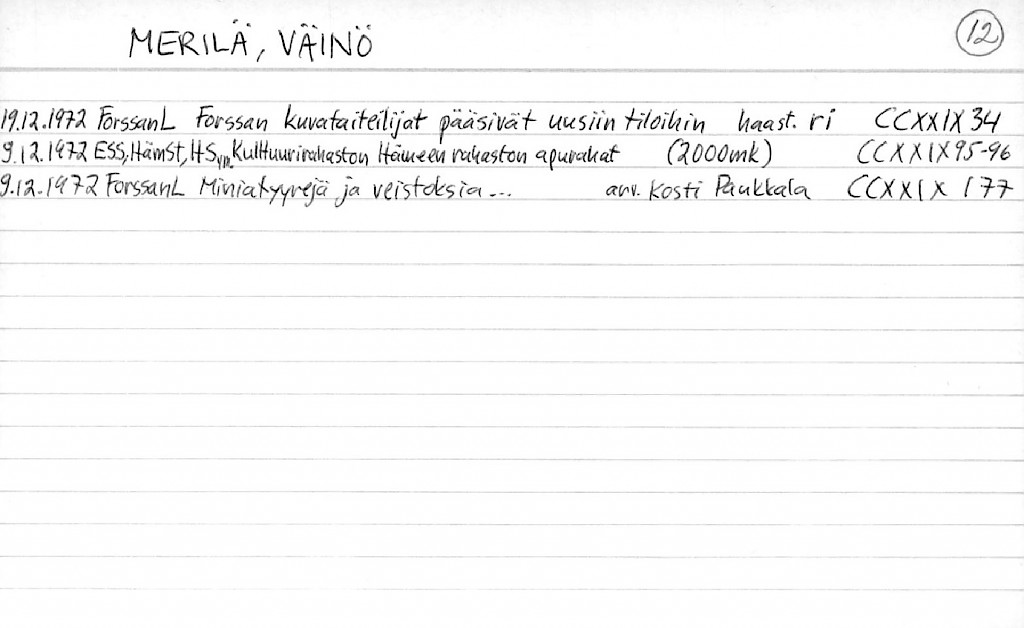 MERILÄ, VÄINÖ 12
19.12.1972 ForssanL Forssan kuvataiteilijat pääsivät uusiin tiloihin haast. ri CCXXIX 34
9.12.1972 ESS, HämSt, HS, ym. Kulttuurirahaston Hämeen rahaston apurahat (2000mk) CCXXIX 95-96
9.12.1972 ForssanL Miniatyyrejä ja veistoksia... arv. Kosti Paukkala CCXXIX 177